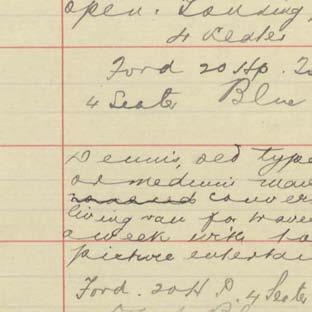 open. Touring,
4 Seater
Ford 20 Hp. T
4 Seater Blue
Dennis, old type
or medium
conver
living van for trave
a week with
picture entertai
Ford. 20 H.P. 4 Seater